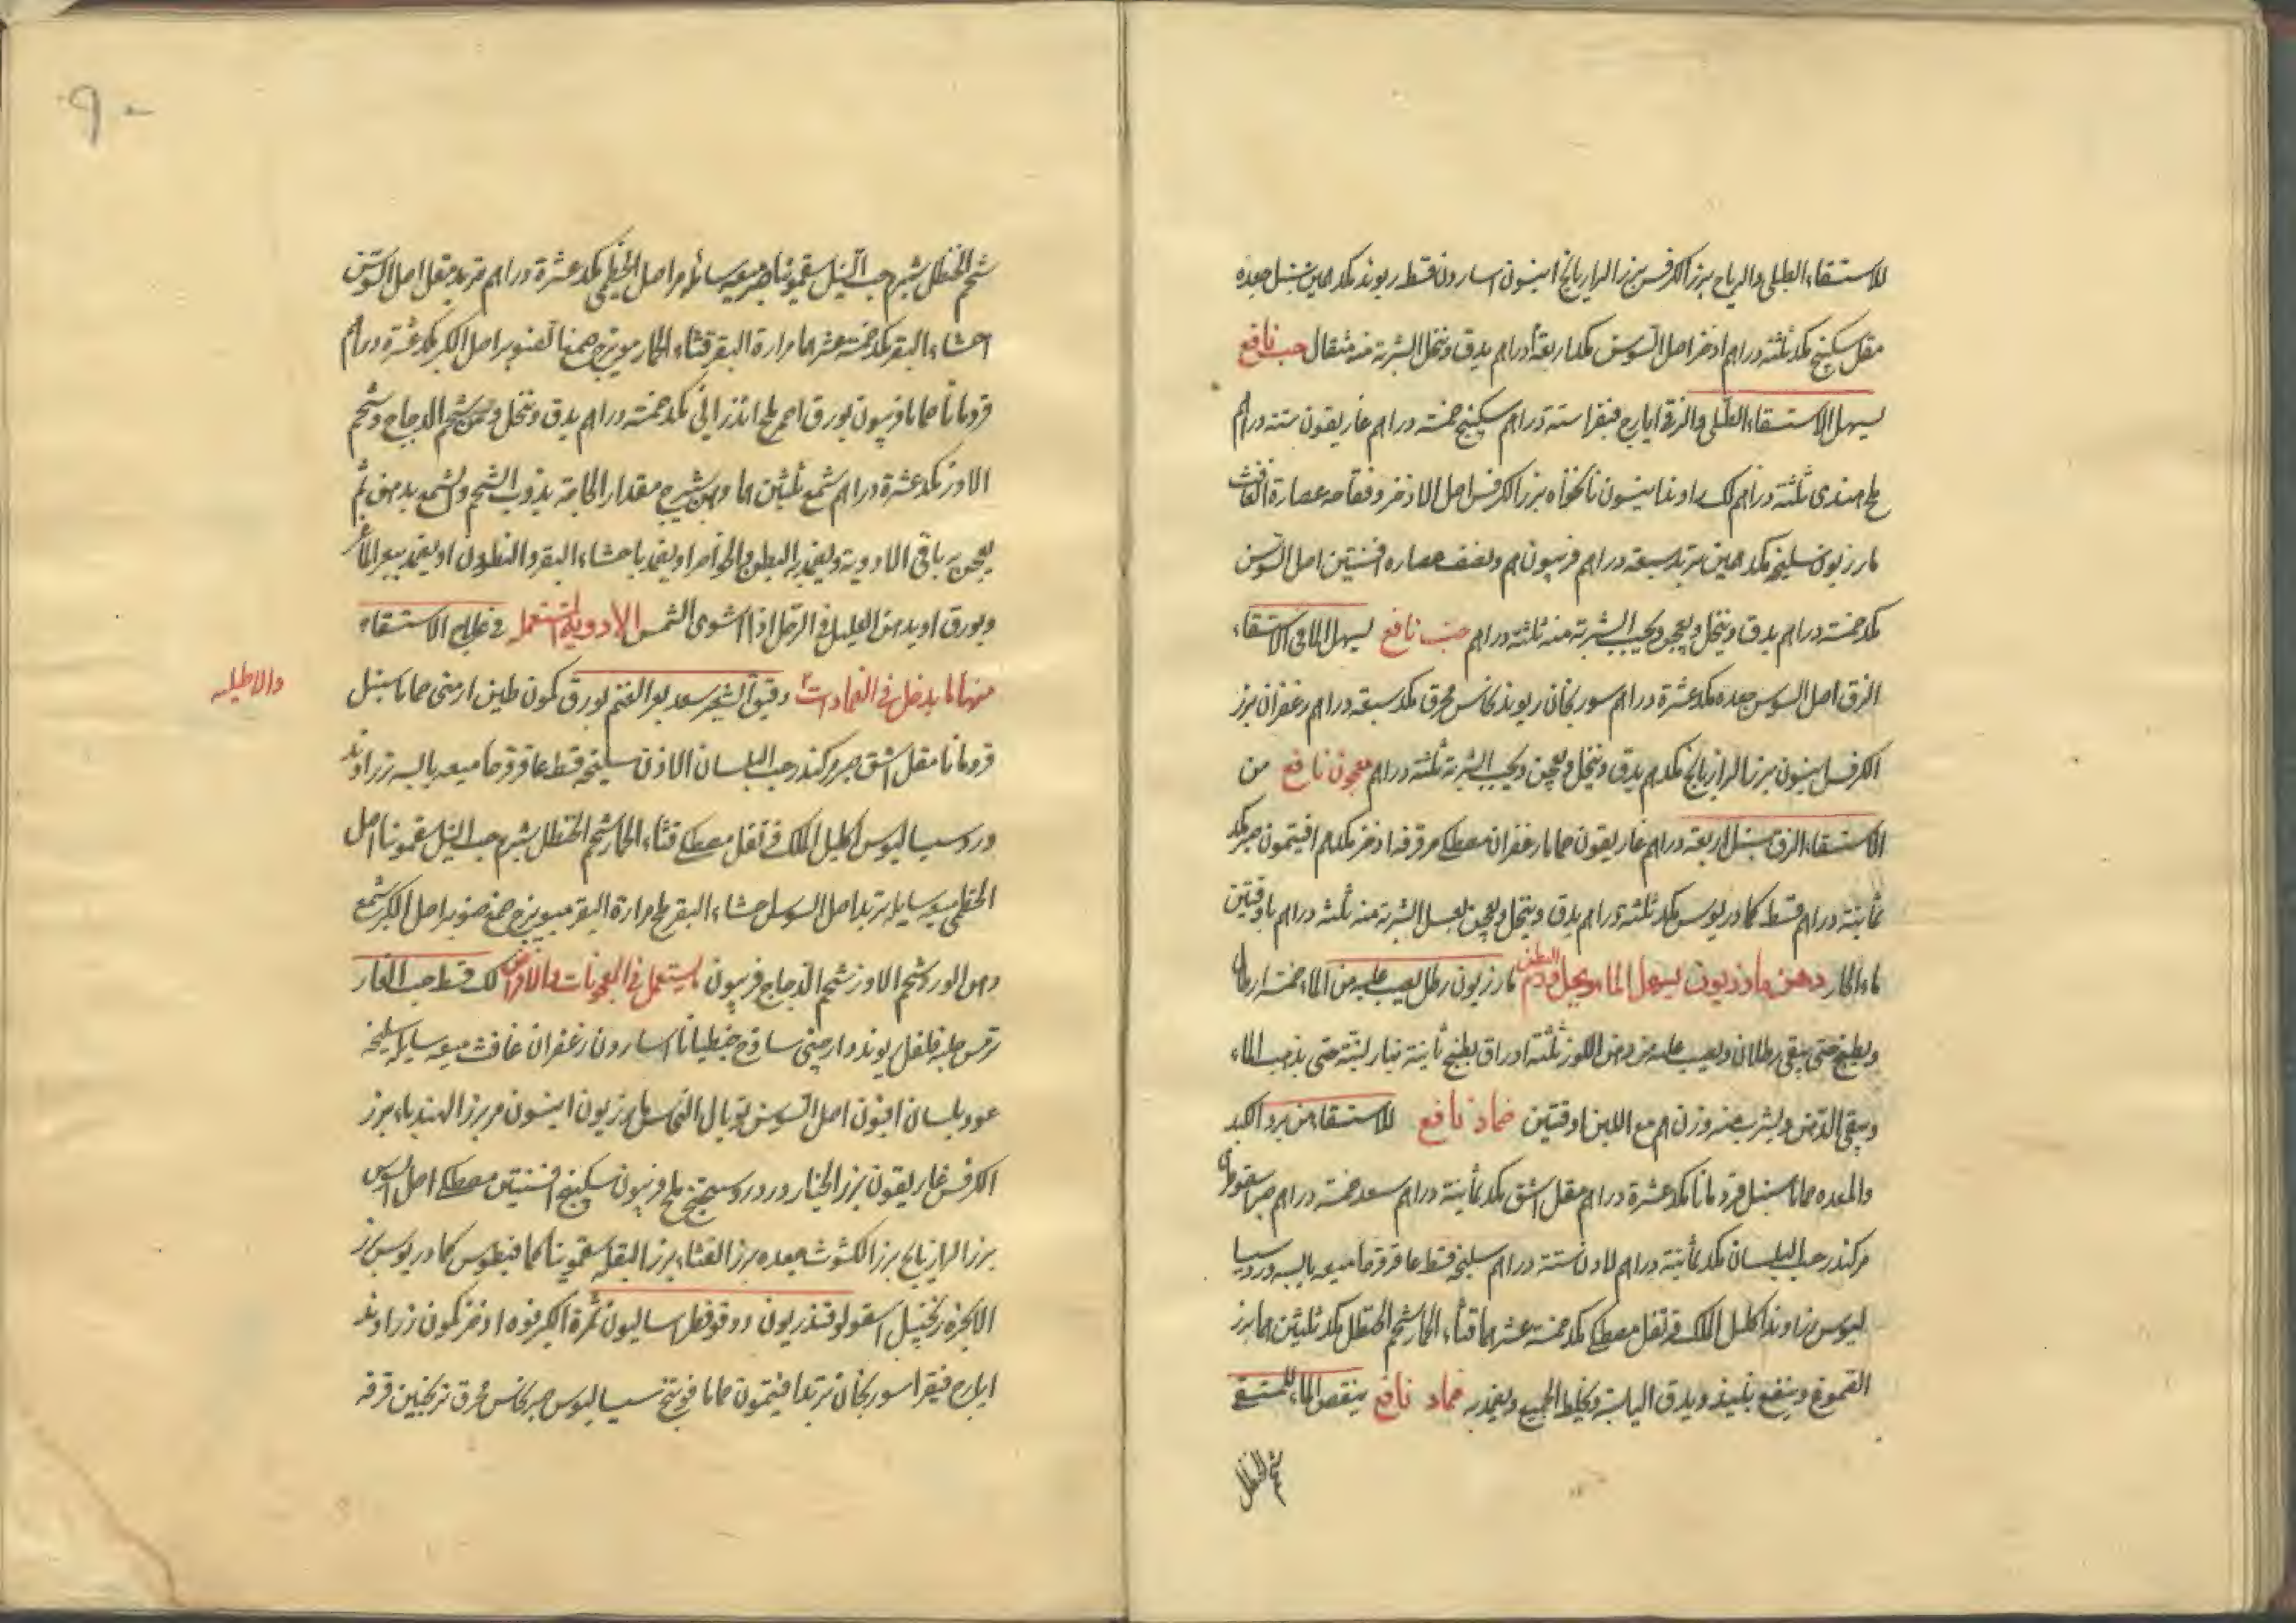 للاستسقاء الطبلي والرياح بزر الكرفس بزر الرازيانج انيسون اسارون قسط ريوند مكد همين سنبل جعده
مقل سكبينج مكد ثلثة دراهم اذخر اصل السوس مكد اربعة دراهم يدق وينخل الشربة منه مثقال حب نافع
يسهل الاستسقاء الطبلي والزقي ايارج فيقرا ستة دراهم سكبينج خمسة دراهم غاريقون ستة دراهم
ملح هندي ثلثة دراهم لك راوند انيسون نانخواه بزر الكرفس اصل الاذخر وفقاحه عصارة الغافث
مازريون سليخه مكد همين تربد سبعة دراهم فربيون هم ونصف عصاره افسنتين اصل السوس
مكد خمسة دراهم يدق وينخل ويعجن ويحبب الشربة منه ثلثة دراهم حب نافع يسهل الما في الاستسقاء
الزقي اصل السوس جعده مكد عشرة دراهم سورنجان ريوند نحاس محرق مكد سبعة دراهم زعفران بزر
الكرفس انيسون بزر الرازيانج مكد هم يدق وينخل ويعجن ويحبب الشربة ثلثة دراهم معجون نافع من
الاستسقاء الزقي سنبل اربعة دراهم غاريقون حماما زعفران مصطكى مر قرفه اذخر مكد هم افيتمون صبر مكد
ثمانية دراهم قسط كمادريوس مكد ثلثة دراهم يدق وينخل ويعجن بعسل الشربة منه ثلثة دراهم باوقيتين
ماء الحار دهن مازريون يسهل الماء ويحل ورم البطن مازريون رطل يصب عليه من الماء خمسة ارطال
ويطبخ حتى يبقى رطلان ويصب عليه من دهن اللوز ثلثة اوراق يطبخ ثانية بنار لينة حتى يذهب الماء
ويبقى الدهن ويشرب منه وزن هم مع اللبن اوقيتين ضماد نافع للاستسقاء من برد الكبد
والمعده حماما سنبل قردمانا مكد عشرة دراهم مقل اشق مكد ثمانية دراهم سعد خمسة دراهم صبر اسقوطري
مر كندر حب البلسان مكد ثمانية دراهم لادن ستة دراهم سليخه قسط عاقرقرحا ميعه يابسه ورد سيسا
ليوس زراوند اكليل الملك قرنفل مصطكى مكد خمسة عشر هما قثاء الحمار شحم الحنظل مكد ثلثين هما بزر
الصموغ وينقع بنبيذ ويدق اليابسة ويخلط الجميع ويضمد به ضماد نافع ينقص الماء للمستسقي
شحم الحنظل
شحم الحنظل شبرم حب النيل سقمونيا صبر ميعه سائله مر اصل الخطمي مكد عشرة دراهم تربد مقل اصل السوس
احشاء البقر مكد خمسة عشر هما مرارة البقر قثاء الحمار ميويزج صمغ الصنوبر اصل الكبر مكد عشرة دراهم
قردمانا حماما فربيون بورق احمر ملح اندراني مكد خمسة دراهم يدق وينخل ويعجن بشحم الدجاج وشحم
الاوز مكد عشرة دراهم شمع ثلثين هما دهن شيرج مقدار الحاجة يذوب الشحم والشمع بدهن ثم
يعجن به باقي الادوية ويضمد به البطن والخواصر او يضمد باحشاء البقر والنطرون او يضمد ببعر الماعز
وبورق او يدهن العليل في الرمل اذا استوى الشمس الادوية المستعمله في علاج الاستسقاء
منها ما يدخل في الضمادات دقيق الشعير سعد بعر الغنم بورق كمون طين ارمني حماما سنبل
والاطليه
قردمانا مقل اشق صبر مر كندر حب البلسان اللاذن سليخه قسط عاقرقرحا ميعه يابسه زراوند
ورد سيساليوس اكليل الملك قرنفل مصطكى قثاء الحمار شحم الحنظل شبرم حب النيل سقمونيا اصل
الخطمي ميعه سايله تربد اصل السوسن احشاء البقر ملح مرارة البقر ميويزج صمغ صنوبر اصل الكبر شمع
دهن الورد شحم الاوز شحم الدجاج فربيون يستعمل في المعجونات والاقراص لك قسط حب الغار
ترمس حلبه فلفل ريوند دارصيني ساذج جنطيانا اسارون زعفران غافث ميعه سايله سليخه
عود بلسان افيون اصل السوس توبال النحاس مازريون انيسون مر بزر الهندباء بزر
الكرفس غاريقون بزر الخيار ورد فربيون سكبينج افسنتين مصطكى اصل السوس
بزر الرازيانج بزر الكشوث جعده بزر القثاء بزر البقله سقمونيا كمافيطوس كمادريوس بزر
الانجره زنجبيل اسقولوقندريون دوقو فطراساليون ثمرة الكبر فوه اذخر كمون زراوند
ايارج فيقرا سورنجان تربد افيتمون حماما فوتنج سيساليوس صبر نحاس محرق ترنجبين قرفه